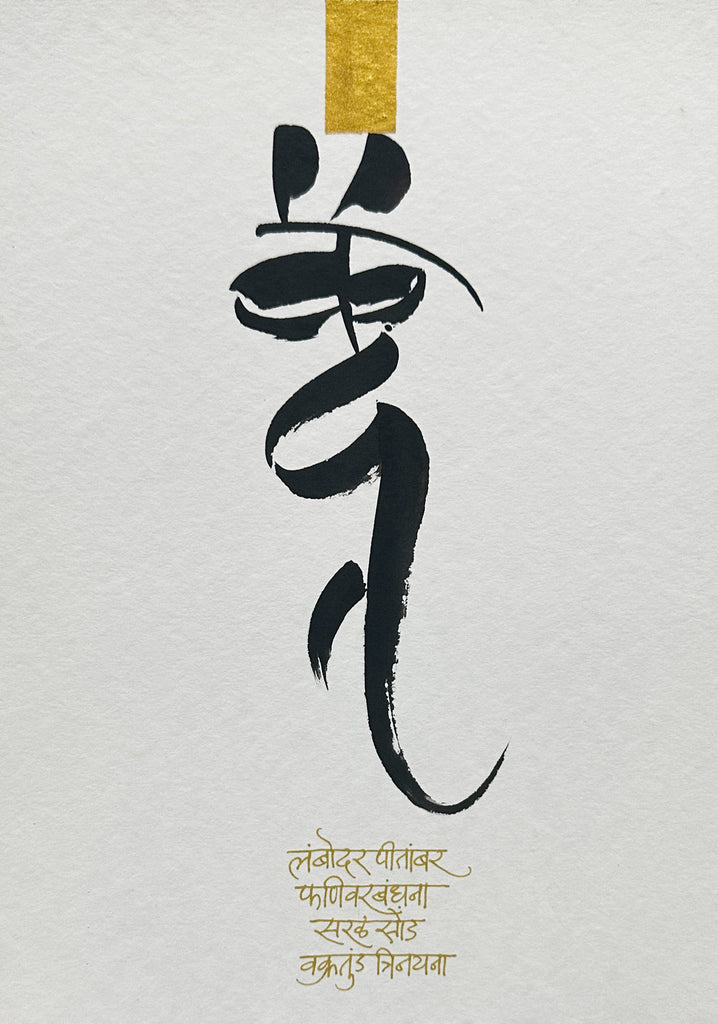 लंबोदर पीतांबर
फणिवरबंधना
सरळ सोंड
वक्रतुंड त्रिनयना